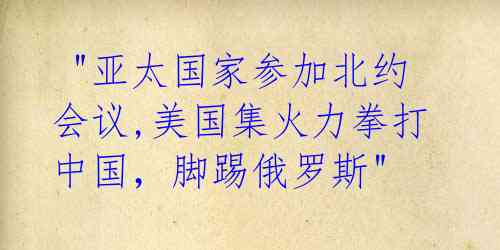 "亚太国家参加北约
会议,美国集火力拳打
中国，脚踢俄罗斯"